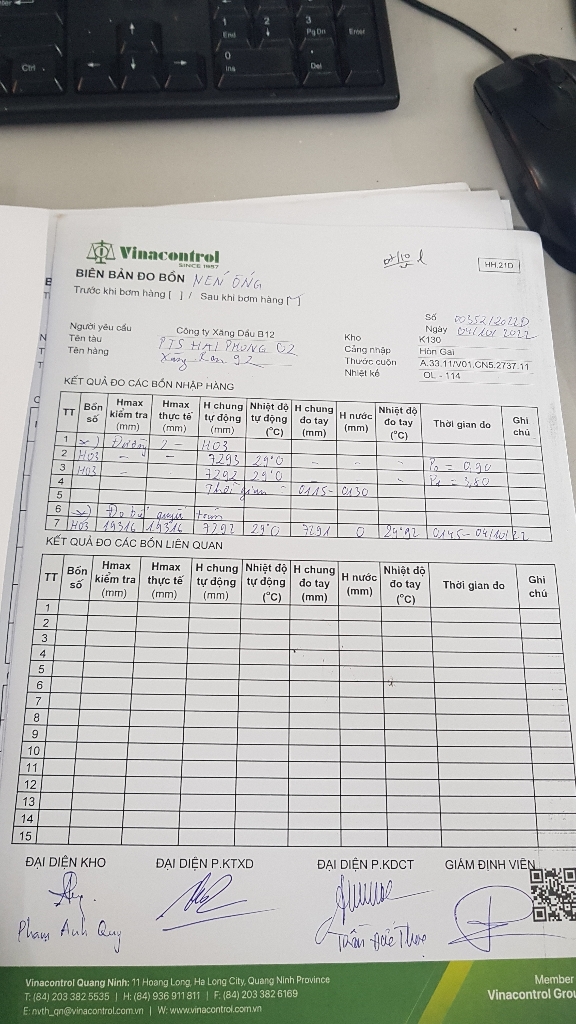 1 End
2
3 Pg Dn
Enter
Ctrl
0 Ins
Del
Vinacontrol
SINCE 1957
HH.21D
BIÊN BẢN ĐO BỒN NÉN ỐNG
Trước khi bơm hàng [ ] / Sau khi bơm hàng [✓]
Số 00352/2022D
Người yêu cầu Công ty Xăng Dầu B12 Ngày 04/10/2022
Tên tàu PTS HAI PHONG 02 Kho K130
Tên hàng Xăng Ron 92 Cảng nhập Hòn Gai
Thước cuộn A.33.11/V01,CN5.2737.11
Nhiệt kế OL - 114
KẾT QUẢ ĐO CÁC BỒN NHẬP HÀNG
TT Bồn số Hmax kiểm tra (mm) Hmax thực tế (mm) H chung tự động (mm) Nhiệt độ tự động (°C) H chung đo tay (mm) H nước (mm) Nhiệt độ đo tay (°C) Thời gian đo Ghi chú
1 H03
2 H03 - - 7293 29°0 - - - P0 = 0,90
3 H03 - - 7292 29°0 - - - P1 = 3,80
4 Thời gian: 0115 - 0130
5
6 *) Đo
7 H03 19316 19316 7292 29°0 7291 0 29°92 0145 - 04/10/22
KẾT QUẢ ĐO CÁC BỒN LIÊN QUAN
TT Bồn số Hmax kiểm tra (mm) Hmax thực tế (mm) H chung tự động (mm) Nhiệt độ tự động (°C) H chung đo tay (mm) H nước (mm) Nhiệt độ đo tay (°C) Thời gian đo Ghi chú
1
2
3
4
5
6
7
8
9
10
11
12
13
14
15
ĐẠI DIỆN KHO ĐẠI DIỆN P.KTXD ĐẠI DIỆN P.KDCT GIÁM ĐỊNH VIÊN
Phạm Anh Quy
Trần Đức
Vinacontrol Quang Ninh: 11 Hoang Long, Ha Long City, Quang Ninh Province
T: (84) 203 382 5535 | H: (84) 936 911 811 | F: (84) 203 382 6169
E: nvth_qn@vinacontrol.com.vn | W: www.vinacontrol.com.vn
Member
Vinacontrol Grou